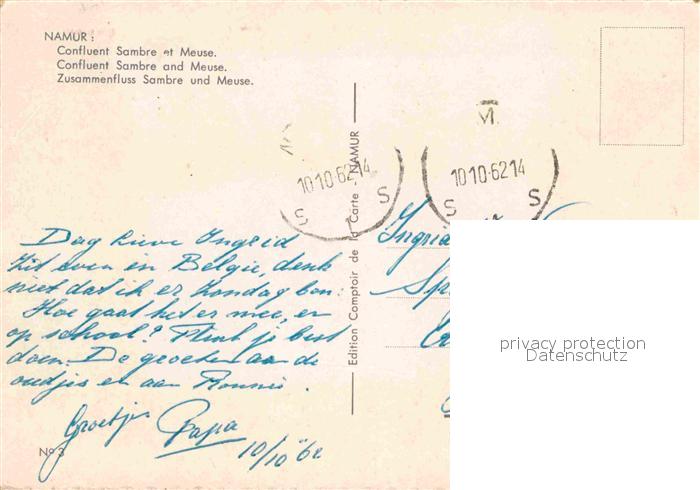 NAMUR :
Confluent Sambre et Meuse.
Confluent Sambre and Meuse.
Zusammenfluss Sambre und Meuse.
10 10·62 14
S 1 S
M
10 10·62 14
S S
Edition Comptoir de la Carte - NAMUR
Dag lieve Ingrid
Zit even in Belgie, denk
niet dat ik er Zondag ben.
Hoe gaat het er mee, er
op school? Flink je best
doen. De groeten aan de
oudjes en aan Ronnie.
Groetjes Papa
10/10 '62
No 3
Ingrid
privacy protection
Datenschutz